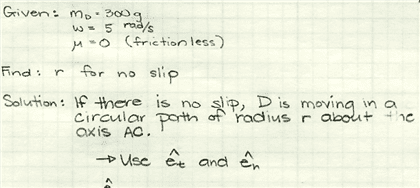 Given: m_D = 300 g
ω = 5 rad/s
μ = 0 (frictionless)
Find: r for no slip
Solution: If there is no slip, D is moving in a
circular path of radius r about the
axis AC.
→ Use ê_t and ê_n